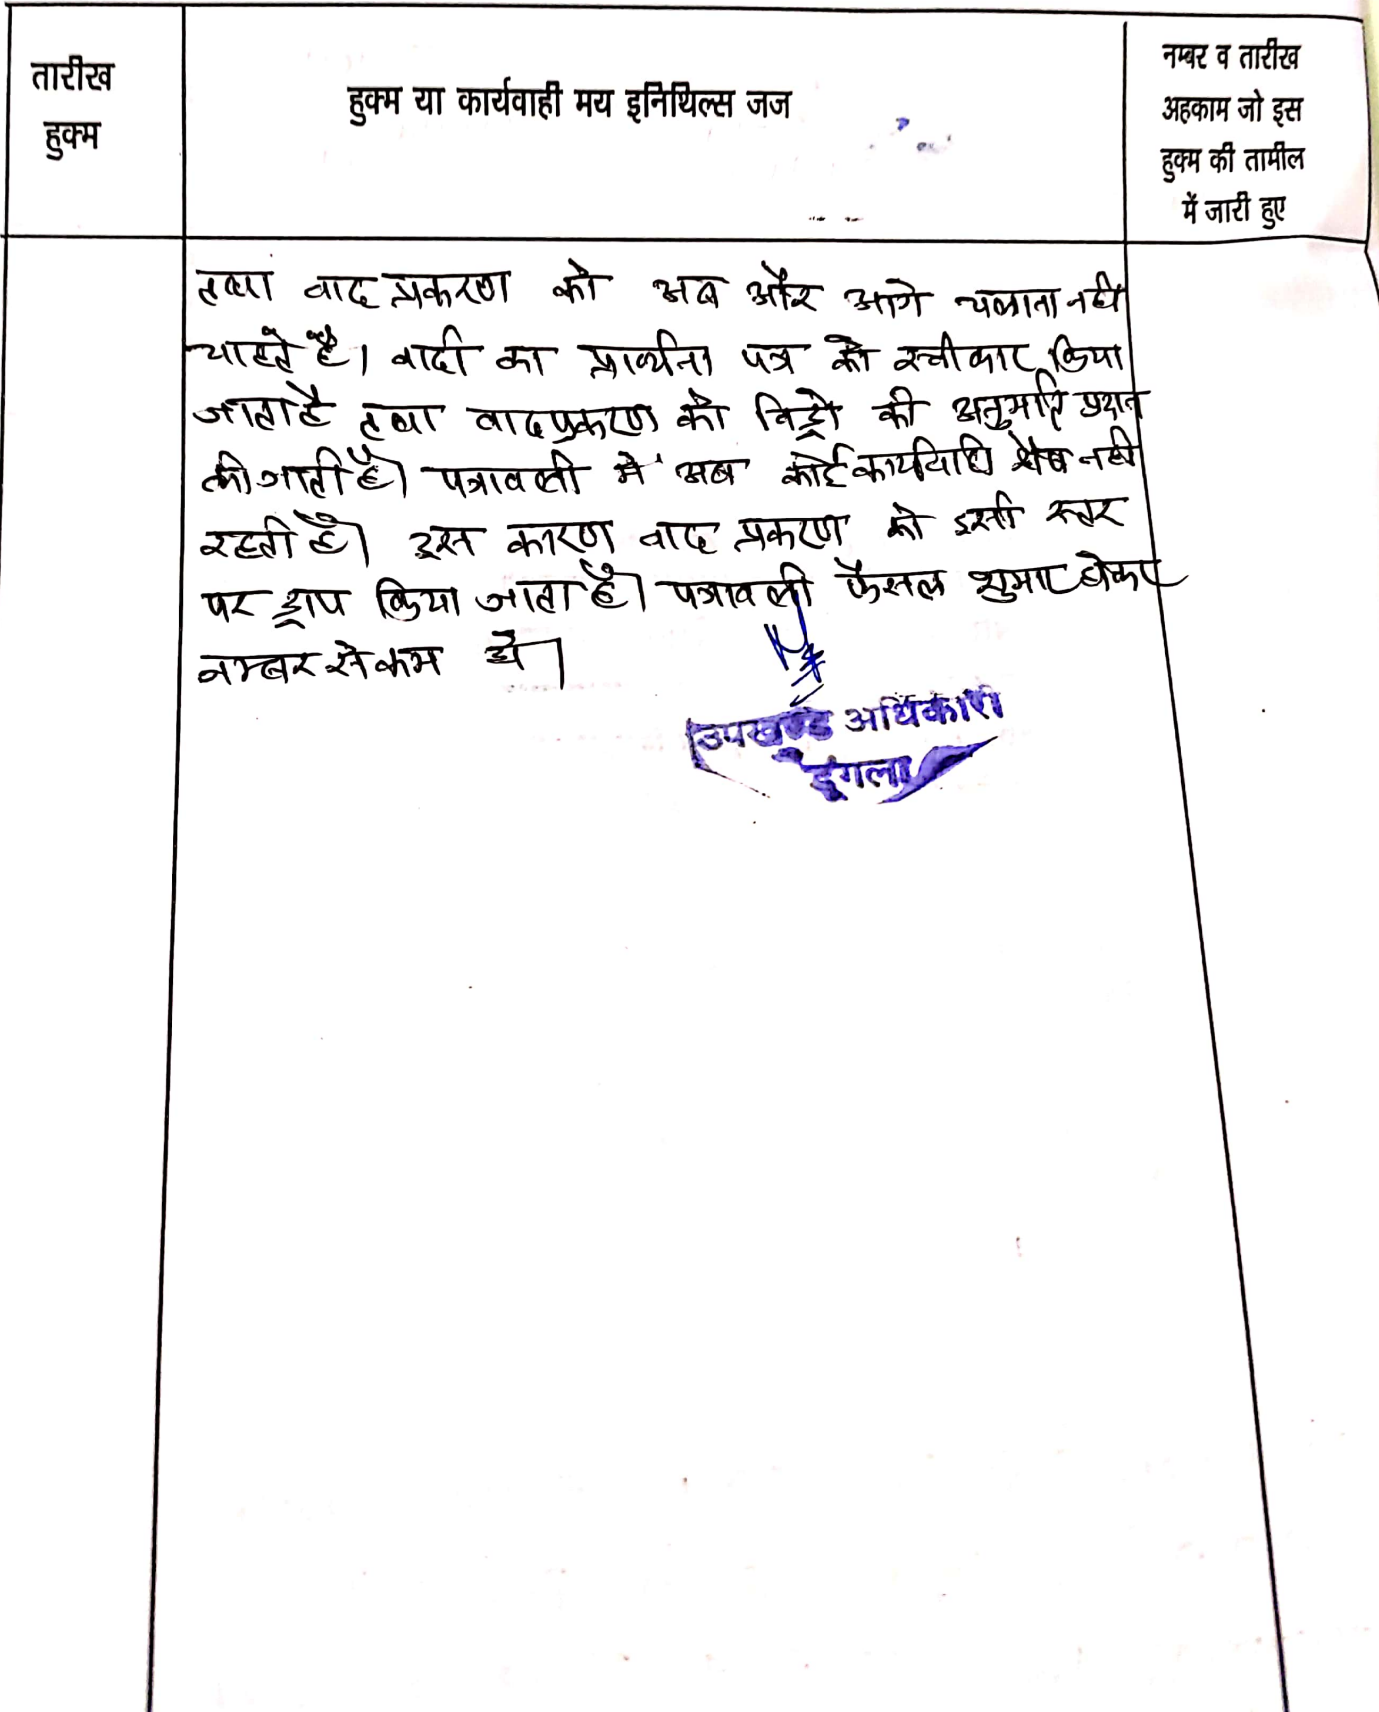 तारीख
हुक्म
हुक्म या कार्यवाही मय इनिथिल्स जज
नम्बर व तारीख
अहकाम जो इस
हुक्म की तामील
में जारी हुए
तथा वाद प्रकरण को अब और आगे चलाना नही
चाहते है। वादी का प्रार्थना पत्र को स्वीकार किया
जाता है तथा वाद प्रकरण को विड्रो की अनुमति प्रदान
की जाती है। पत्रावली में अब कोई कार्यविधि शेष नही
रहती है। इस कारण वाद प्रकरण को इसी स्तर
पर ड्राप किया जाता है। पत्रावली फैसल शुमार होकर
नम्बर से कम हो।
उपखण्ड अधिकारी
डूंगला